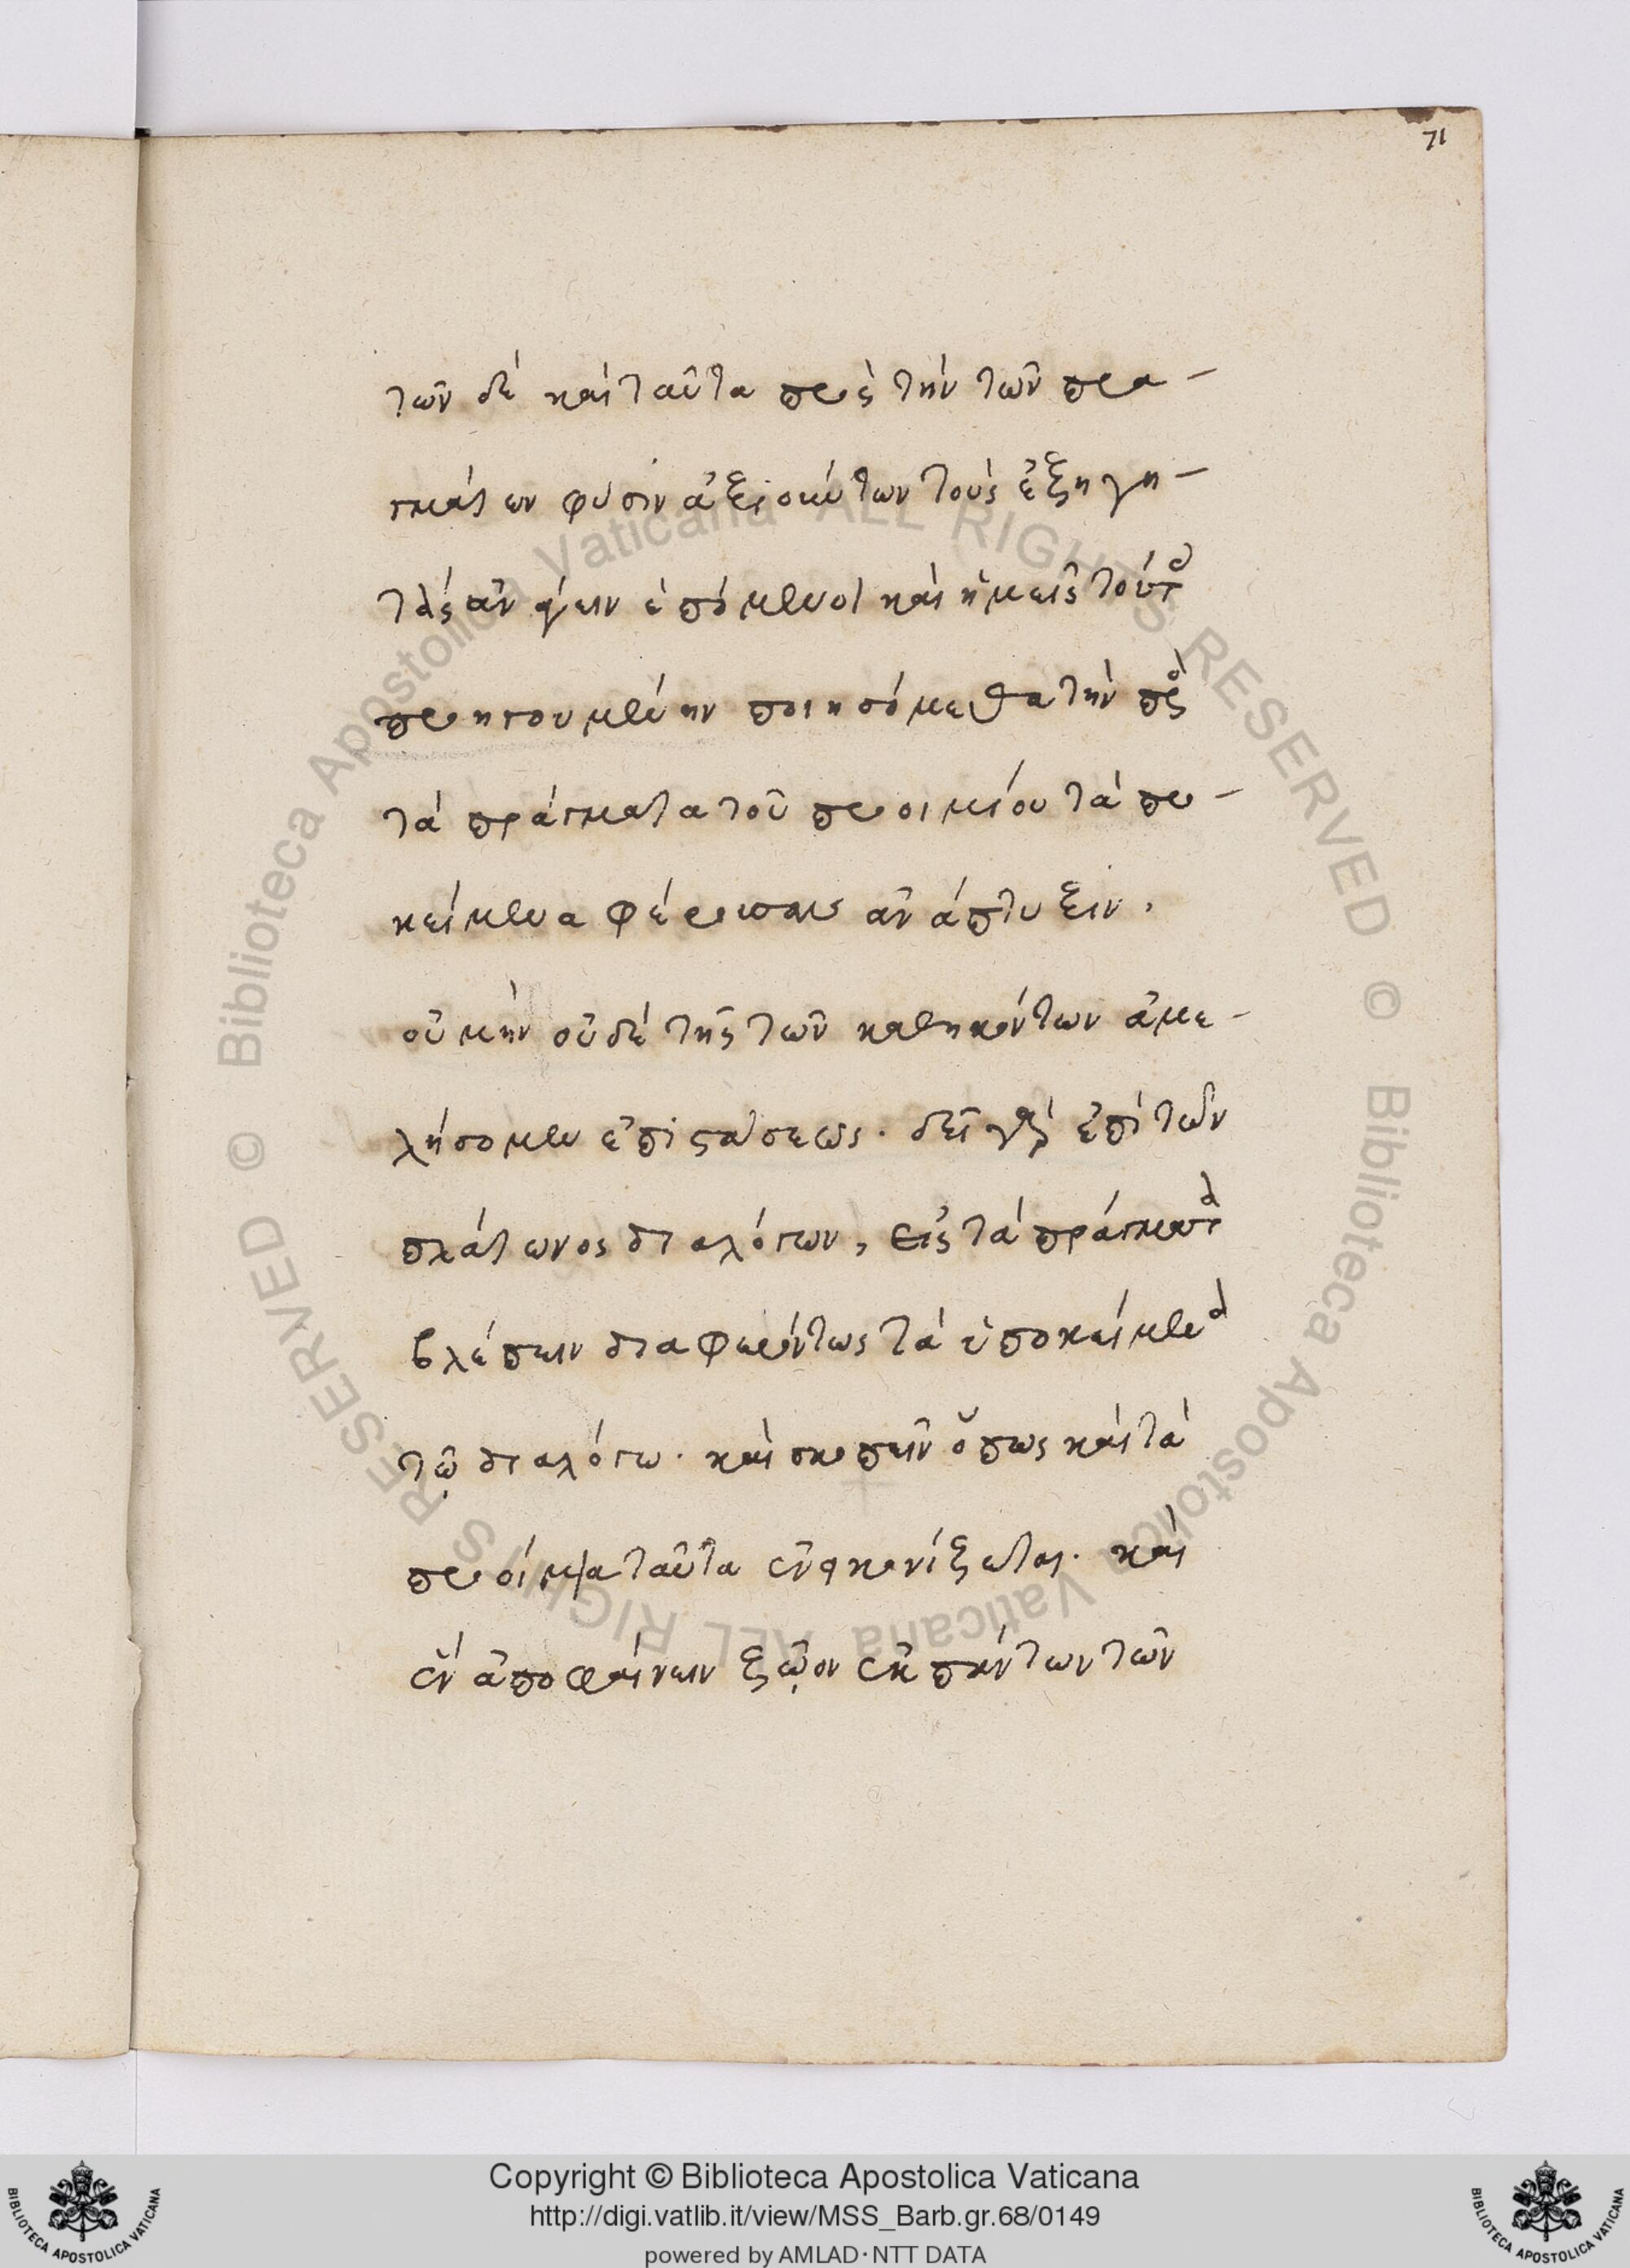 71
των δὲ καὶ ταῦτα πρὸς τὴν τῶν πρα-
γμάτων φύσιν ἀξιούντων τοὺς ἐξηγη-
τὰς ἀνάγειν ἑπόμενοι καὶ ἡμεῖς τούτο
προηγουμένην ποιησόμεθα τὴν πρὸς
τὰ πράγματα τοῦ προοιμίου τὰ προ-
κείμενα φέρουσαν ἀνάπτυξιν,
οὐ μὴν οὐδὲ τῆς τῶν καθηκόντων ἀμε-
λήσομεν ἐπιστάσεως. δεῖ γὰρ ἐπὶ τῶν
πλάτωνος διαλόγων, εἰς τὰ πράγματα
βλέπειν διαφερόντως τὰ ὑποκείμενα
τῷ διαλόγω. καὶ σκοπεῖν ὅπως καὶ τὰ
προοίμια ταῦτα ἐνεικονίζεται. καὶ
ἓν ἀποφαίνειν ζῷον ἐκ πάντων τῶν
Copyright © Biblioteca Apostolica Vaticana
http://digi.vatlib.it/view/MSS_Barb.gr.68/0149
powered by AMLAD·NTT DATA
BIBLIOTECA APOSTOLICA VATICANA
BIBLIOTECA APOSTOLICA VATICANA
© Biblioteca Apostolica Vaticana ALL RIGHTS RESERVED © Biblioteca Apostolica Vaticana ALL RIGHTS RESERVED